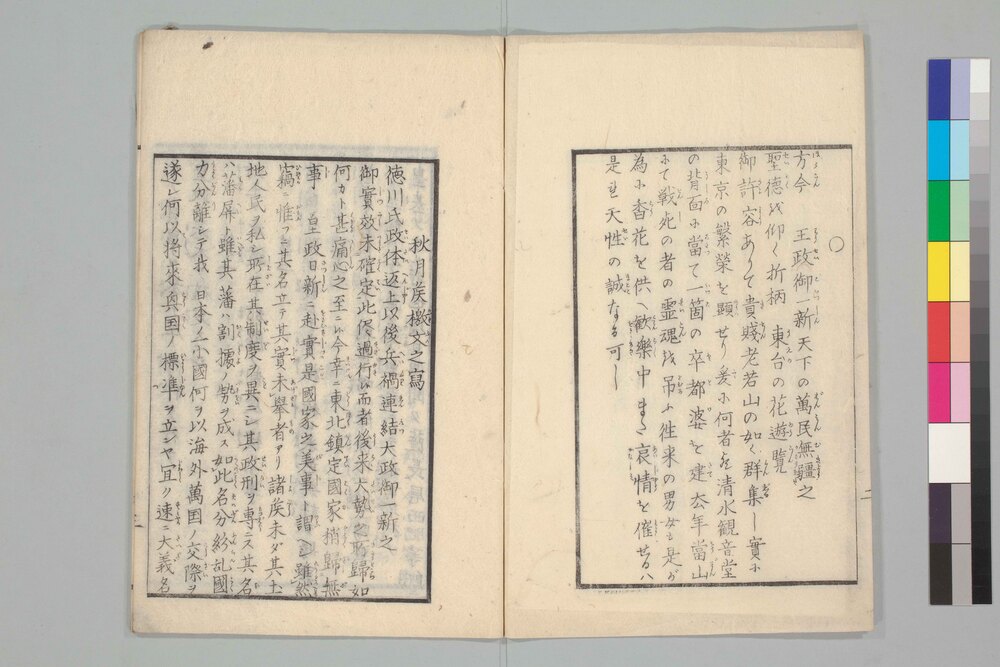 ○
方今　王政御一新天下の萬民無疆之
聖徳を仰く折柄　東台の花遊覽
御許容ありて貴賤老若山の如く群集し實に
東京の繁榮を顕せり爰に何者歟清水觀音堂
の背面に當て一箇の卒都婆を建去年當山
にて戰死の者の靈魂を吊ふ徃来の男女も是が
為に香花を供へ歓樂中また哀情を催せるハ
是ミな天性の誠なる可し
二
秋月侯檄文之寫
徳川氏政体返上以後兵禍連結大政御一新之
御實效未確定此侭過行ハ而者後来大勢之所歸如
何カト甚痛心之至ニ候今幸ニ東北鎮定國家稍歸無
事　皇政日新ニ赴實是國家之美事ト謂ヘシ雖然
竊惟フニ其名立テ其實未舉者アリ諸侯未ダ其土
地人民ヲ私シ所在其制度ヲ異ニシ其政刑ヲ專ニス其名
ハ藩屏ト雖其藩ハ割據ノ勢ヲ成ス如此名分紛乱國
力分離シテ我　日本ノ一小國何ヲ以海外萬国ノ交際ヲ
遂シ何以将來與国ノ標準ヲ立ンヤ宜ク速ニ大義名
三